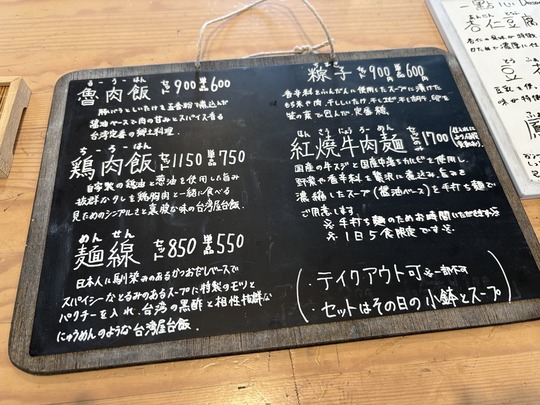 るーろーはん
魯肉飯 セット900 単品600
豚バラとしいたけを五香粉で煮込んだ
醤油ベースで肉の甘みとスパイス香る
台湾定番の郷土料理.
ちーろーはん
鶏肉飯 セット1150 単品750
自製の鶏油と葱油を使用した旨み
抜群なタレを鶏胸肉と一緒に食べる
見ためのシンプルさと裏腹な味の台湾屋台飯.
めんせん
麺線 セット850 単品550
日本人に馴染みのあるかつおだしベースで
スパイシーなとろみのあるスープに特製のモツと
パクチーを入れ、台湾の黒酢と相性抜群な
にゅうめんのような台湾屋台飯.
糉子 セット900 単品600
香辛料とふんだんに使用したスープに漬けた
もち米や肉、干ししいたけ、干しエビ
笹の葉で包んだ、定番糉.
紅焼牛肉麺 セットのみ1700
国産の牛スジと国産中落ちカルビを使用し、
野菜や香辛料を贅沢に煮込み、旨みを
濃縮したスープ(醤油ベース)を手打ち麺で
ご用意します
※手打ち麺のためお時間いただきます
※1日5食限定です※
・テイクアウト可※一部不可
・セットはその日の小鉢とスープ
杏仁豆腐